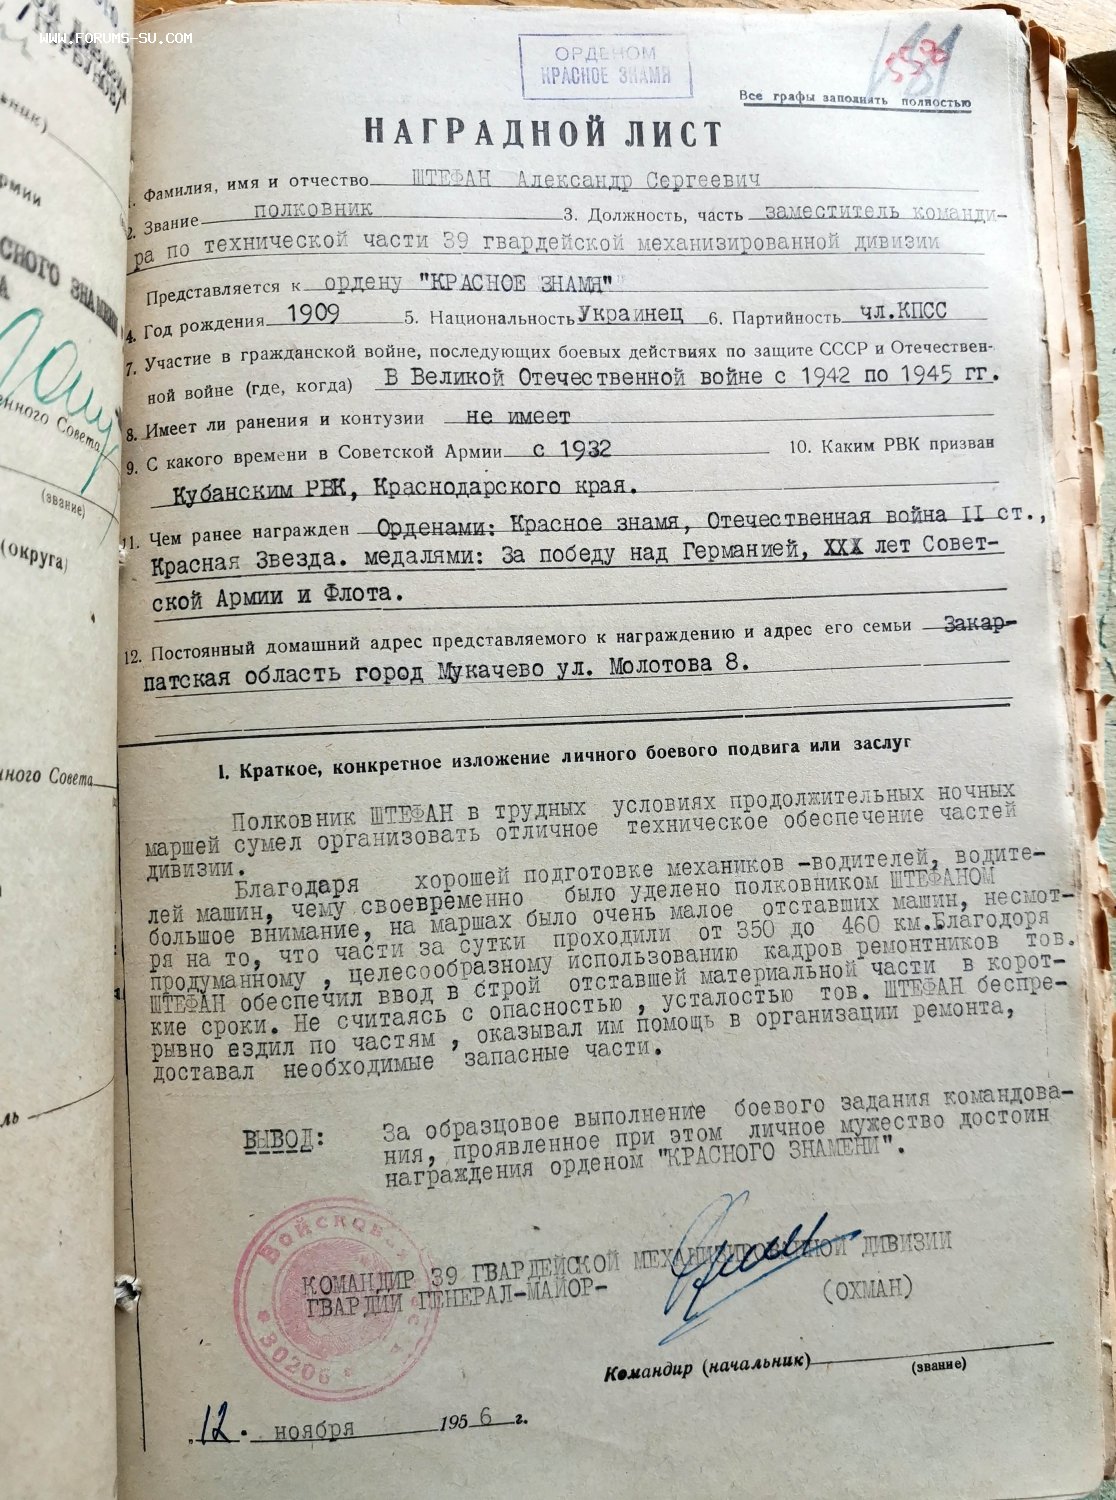 WWW.FORUMS-SU.COM
ОРДЕНОМ
КРАСНОЕ ЗНАМЯ
558
Все графы заполнять полностью
НАГРАДНОЙ ЛИСТ
1. Фамилия, имя и отчество ШТЕФАН Александр Сергеевич
2. Звание полковник 3. Должность, часть заместитель команди-
ра по технической части 39 гвардейской механизированной дивизии
Представляется к ордену "КРАСНОЕ ЗНАМЯ"
4. Год рождения 1909 5. Национальность Украинец 6. Партийность чл.КПСС
7. Участие в гражданской войне, последующих боевых действиях по защите СССР и Отечествен-
ной войне (где, когда) В Великой Отечественной войне с 1942 по 1945 гг.
8. Имеет ли ранения и контузии не имеет
9. С какого времени в Советской Армии с 1932 10. Каким РВК призван
Кубанским РВК, Краснодарского края.
11. Чем ранее награжден Орденами: Красное знамя, Отечественная война II ст.,
Красная Звезда. медалями: За победу над Германией, XXX лет Совет-
ской Армии и Флота.
12. Постоянный домашний адрес представляемого к награждению и адрес его семьи Закар-
патская область город Мукачево ул. Молотова 8.
I. Краткое, конкретное изложение личного боевого подвига или заслуг
Полковник ШТЕФАН в трудных условиях продолжительных ночных
маршей сумел организовать отличное техническое обеспечение частей
дивизии.
Благодаря хорошей подготовке механиков -водителей, водите-
лей машин, чему своевременно было уделено полковником ШТЕФАНОМ
большое внимание, на маршах было очень малое отставших машин, несмот-
ря на то, что части за сутки проходили от 350 до 460 км.Благодоря
продуманному , целесообразному использованию кадров ремонтников тов.
ШТЕФАН обеспечил ввод в строй отставшей материальной части в корот-
кие сроки. Не считаясь с опасностью , усталостью тов. ШТЕФАН беспре-
рывно ездил по частям , оказывал им помощь в организации ремонта,
доставал необходимые запасные части.
ВЫВОД: За образцовое выполнение боевого задания командова-
ния, проявленное при этом личное мужество достоин
награждения орденом "КРАСНОГО ЗНАМЕНИ".
КОМАНДИР 39 ГВАРДЕЙСКОЙ МЕХАНИЗИРОВАННОЙ ДИВИЗИИ
ГВАРДИИ ГЕНЕРАЛ-МАЙОР- (ОХМАН)
30206
Командир (начальник)
(звание)
„12. ноября 1956 г.
СНОГО ЗНАМЕНИ
енного Совета
(звание)
(округа)
нного Совета